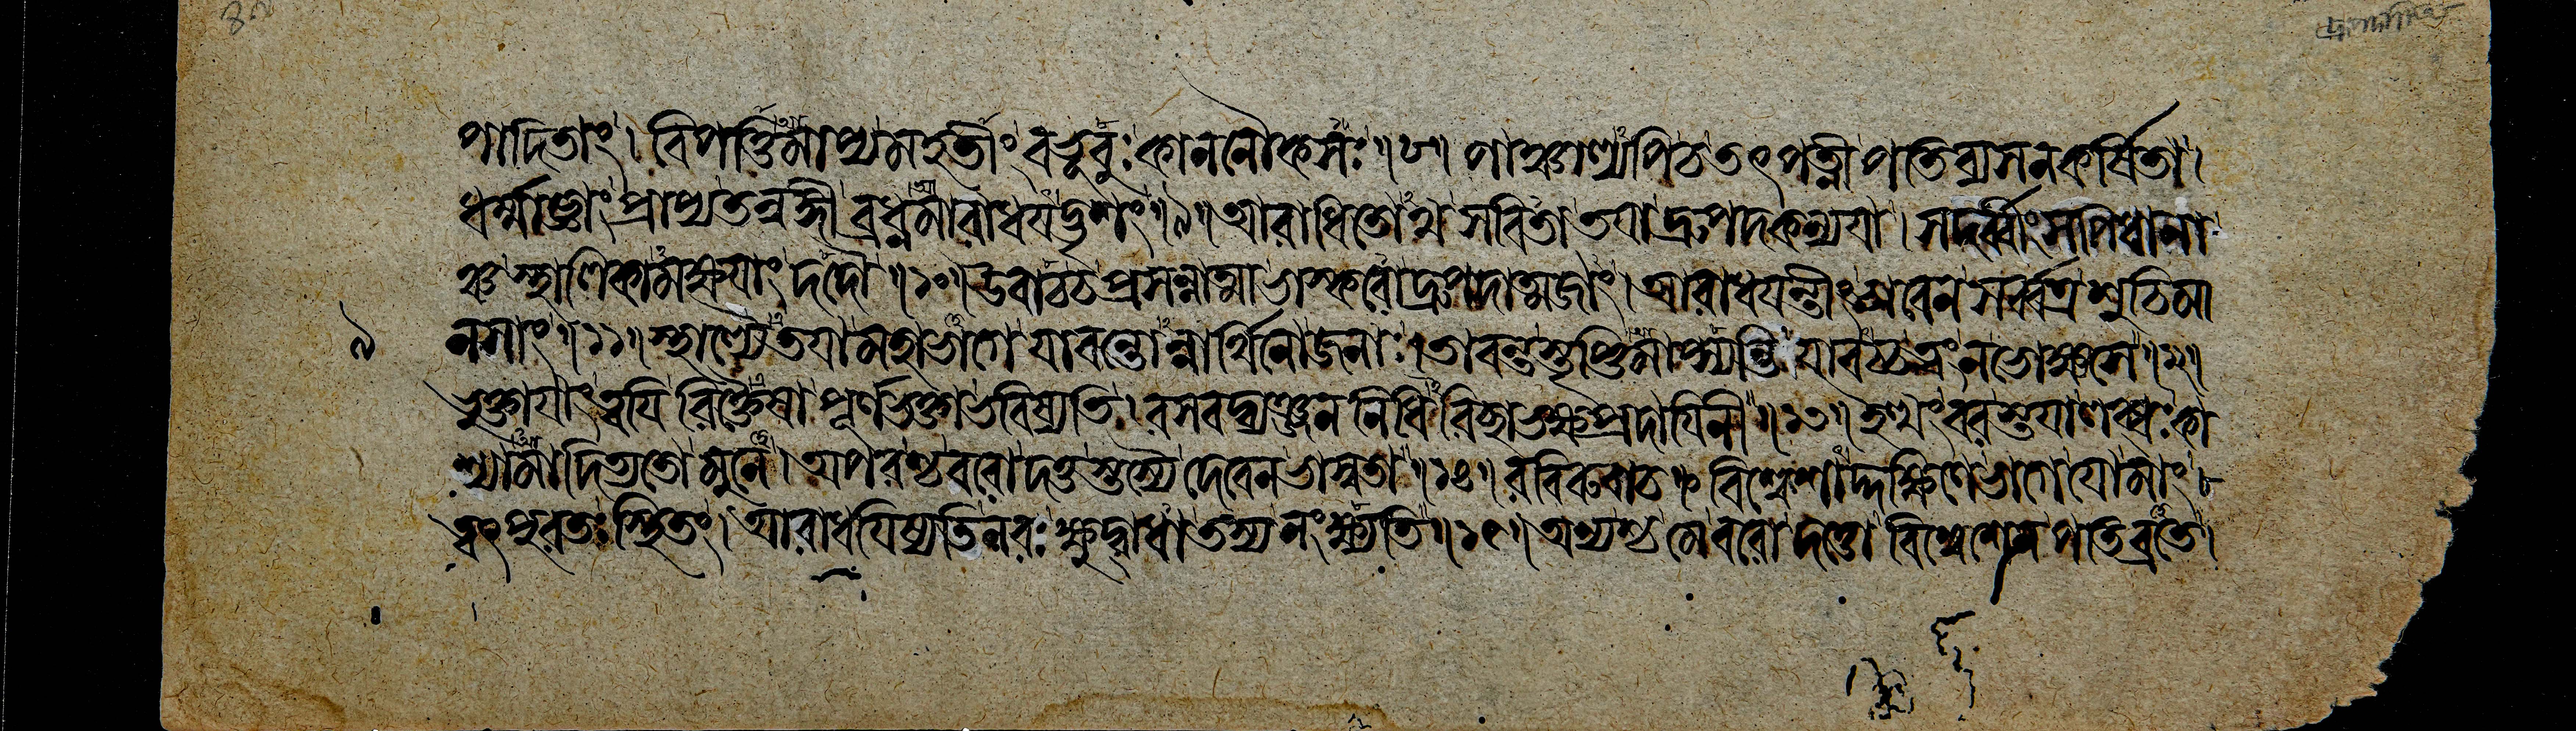 পাদিতাং। বিপত্তিমাপ্যমহতীং বভূবুঃ কাননৌকসঃ॥৮॥ পাঞ্চাল্যপিচতৎপত্নীপতিব্যসনকর্ষিতা।
ধর্ম্মাজ্ঞাং প্রাপ্যতন্বঙ্গী ব্রধ্নমারাধযদ্ভৃশং॥৯॥ আরাধিতোথ সবিতা তযাদ্রুপদকন্যযা। সদর্ব্বীং সপিধানা
ঞ্চ স্থালিকামক্ষযাং দদৌ॥১০॥ উবাচচ প্রসন্নাত্মাভাস্করোদ্রুপদাত্মজাং। আরাধযন্তীং ভাবেন সর্ব্বত্র শুচিমা
৯ নসাং॥১১॥ স্থাল্যৈতযামহাভাগে যাবন্তোন্নার্থিনোজনাঃ। তাবন্তস্তৃপ্তিমাপ্স্যন্তি যাবচ্চত্বং নভোক্ষ্যসে॥১২॥
ভুক্তাযাং ত্বযি রিক্তৈষা পূর্ণভক্তাভবিষ্যতি। রসবদ্ব্যঞ্জন নিধিরিচ্ছাভক্ষ্যপ্রদাযিনী॥১৩॥ ইত্থং বরস্তযালব্ধঃ কা
শ্যামাদিত্যতো মুনে। অপরশ্চবরোদত্তস্তস্যৈ দেবেনভাস্বতা॥১৪॥ রবিরুবাচ ॥ বিশ্বেশাদ্দক্ষিণেভাগে যোমাং
ত্বৎপুরতঃ স্থিতং। আরাধযিষ্যতিনরঃ ক্ষুদ্বাধা তস্য নংক্ষ্যতি॥১৫॥ অন্যশ্চ মেবরোদত্তো বিশ্বেশেন পতিব্রতে।